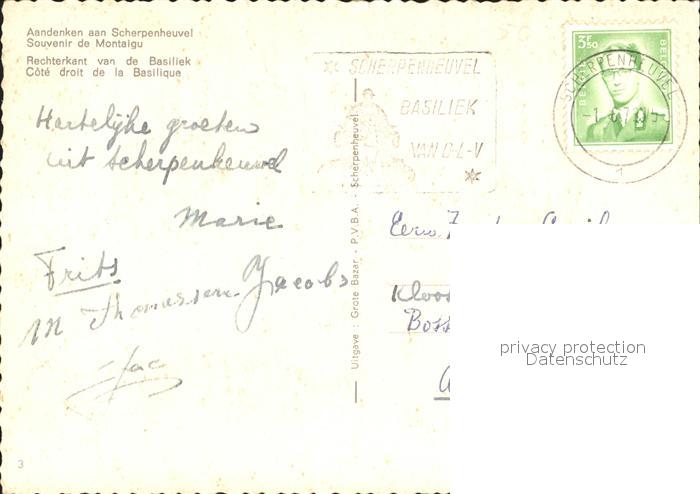 Aandenken aan Scherpenheuvel
Souvenir de Montaigu
Rechterkant van de Basiliek
Côté droit de la Basilique
SCHERPENHEUVEL
BASILIEK
VAN O-L-V
3F50
BELGIE
SCHERPENHEUVEL
1
Hartelijke groeten
uit Scherpenheuvel
Marie
Frits
M Thomassen Jacobs
Jac
Uitgave : Grote Bazar - P.V.B.A. - Scherpenheuvel
Eerw.
Kloos
Boss
privacy protection
Datenschutz
3